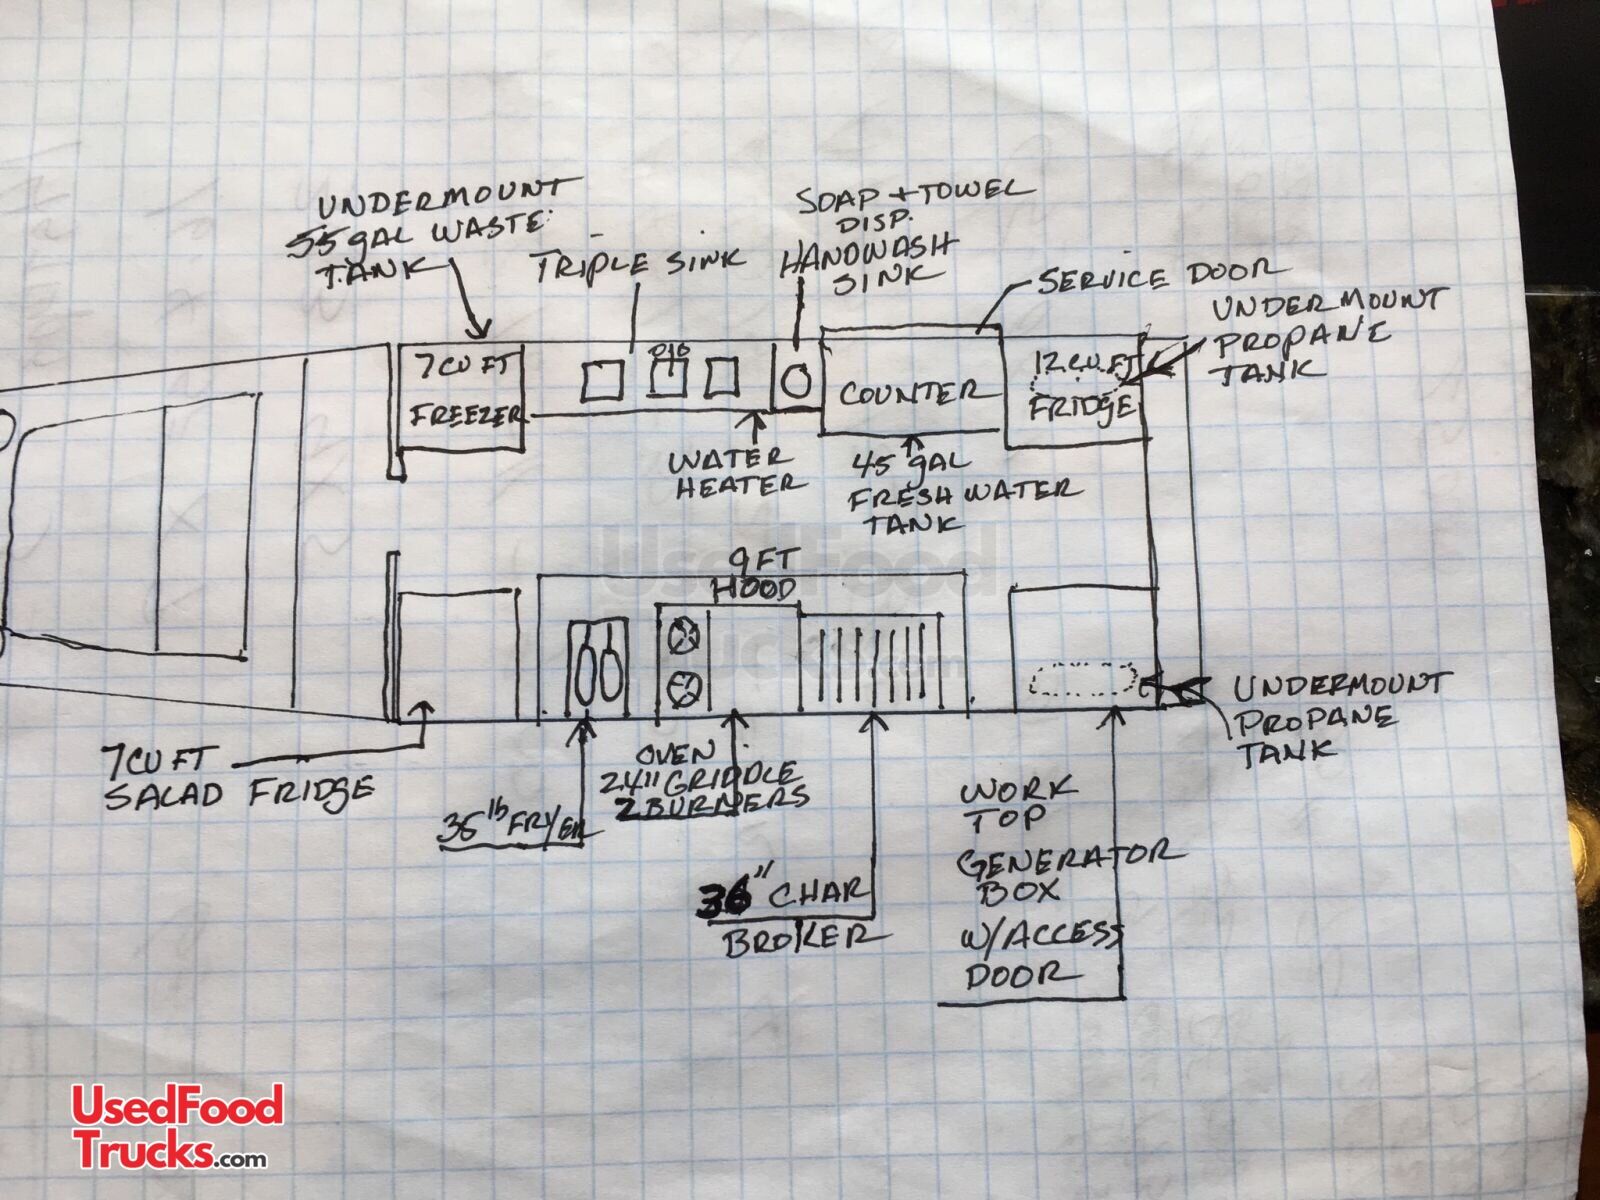 UNDERMOUNT
55 gAL WASTE
TANK
TRIPLE SINK
SOAP + TOWEL
DISP.
HANDWASH
SINK
SERVICE DOOR
UNDERMOUNT
PROPANE
TANK
7 CU FT
FREEZER
COUNTER
12 C.U. FT
FRIDgE
WATER
HEATER
45 gAL
FRESH WATER
TANK
UsedFood
Trucks.com
9 FT
HOOD
7 CU FT
SALAD FRIDgE
35 lb FRYER
OVEN
24" GRIDDLE
2 BURNERS
36" CHAR
BROILER
WORK
TOP
GENERATOR
BOX
W/ACCESS
DOOR
UNDERMOUNT
PROPANE
TANK
UsedFood
Trucks.com